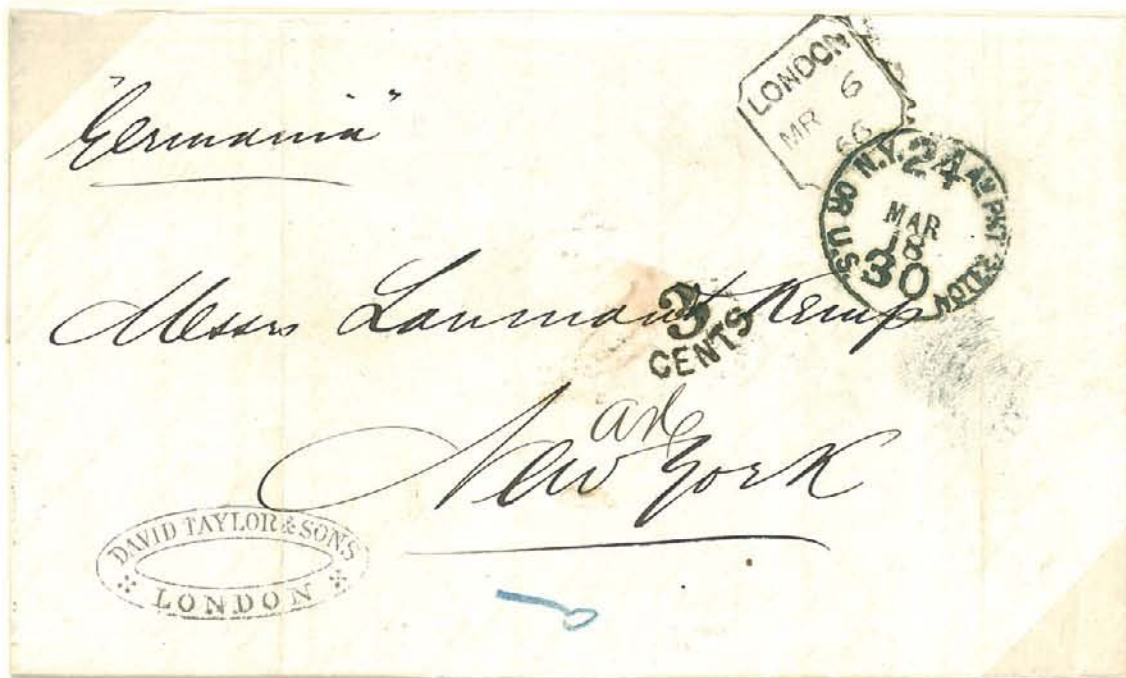 "Germania"
LONDON
MR 6
66
N.Y. 24 AM PKT
MAR
18
30
OR U.S. NOTES
Messrs Lanman & Kemp
3
CENTS
New York
DAVID TAYLOR & SONS
LONDON